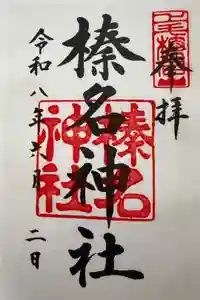 奉拝
榛名神社
榛名
神社
令和八年六月二日